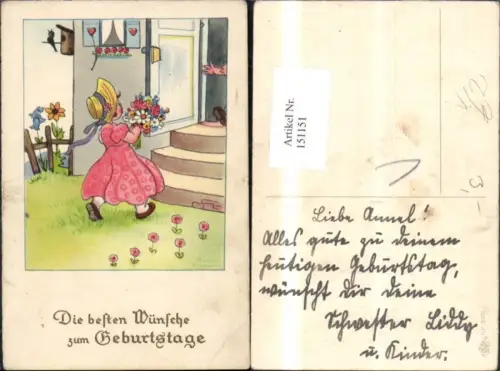 Die besten Wünsche
zum Geburtstage
Artikel Nr.
151151
3,-
Liebe Annel!
Alles gute zu deinem
heutigen Geburtstag,
wünscht dir deine
Schwester Liddy
u. Kinder.